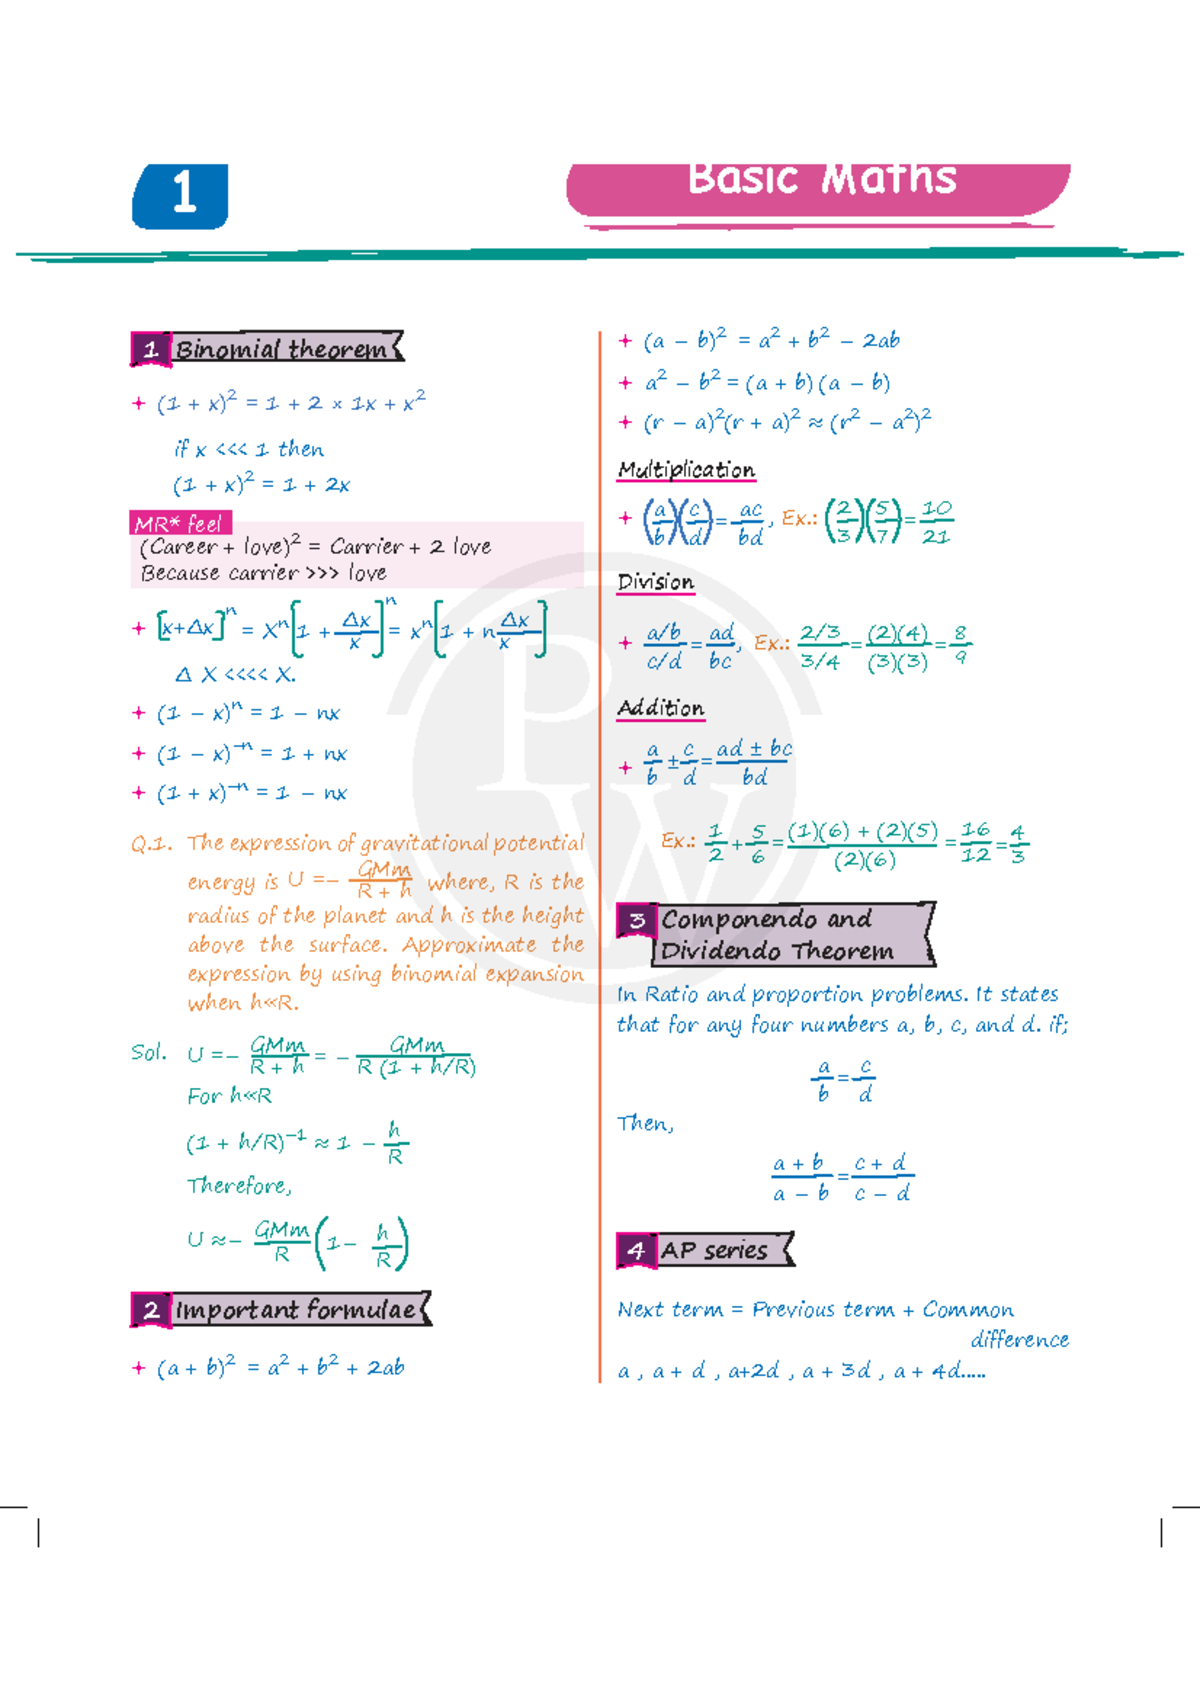 1
Basic Maths
1 Binomial theorem
+ (1 + x)² = 1 + 2 × 1x + x²
if x <<< 1 then
(1 + x)² = 1 + 2x
MR* feel
(Career + love)² = Carrier + 2 love
Because carrier >>> love
+ [x+Δx]ⁿ = Xⁿ[1 + Δx/x]ⁿ = xⁿ[1 + n Δx/x]
Δ X <<<< X.
+ (1 − x)ⁿ = 1 − nx
+ (1 − x)⁻ⁿ = 1 + nx
+ (1 + x)⁻ⁿ = 1 − nx
Q.1. The expression of gravitational potential
energy is U = − GMm/(R + h) where, R is the
radius of the planet and h is the height
above the surface. Approximate the
expression by using binomial expansion
when h≪R.
Sol. U = − GMm/(R + h) = − GMm/(R (1 + h/R))
For h≪R
(1 + h/R)⁻¹ ≈ 1 − h/R
Therefore,
U ≈ − GMm/R (1 − h/R)
2 Important formulae
+ (a + b)² = a² + b² + 2ab
+ (a − b)² = a² + b² − 2ab
+ a² − b² = (a + b) (a − b)
+ (r − a)²(r + a)² ≈ (r² − a²)²
Multiplication
+ (a/b)(c/d) = ac/bd, Ex.: (2/3)(5/7) = 10/21
Division
+ (a/b)/(c/d) = ad/bc, Ex.: (2/3)/(3/4) = (2)(4)/(3)(3) = 8/9
Addition
+ a/b ± c/d = (ad ± bc)/bd
Ex.: 1/2 + 5/6 = ((1)(6) + (2)(5))/((2)(6)) = 16/12 = 4/3
3 Componendo and
Dividendo Theorem
In Ratio and proportion problems. It states
that for any four numbers a, b, c, and d. if;
a/b = c/d
Then,
(a + b)/(a − b) = (c + d)/(c − d)
4 AP series
Next term = Previous term + Common
difference
a , a + d , a+2d , a + 3d , a + 4d.....
PW